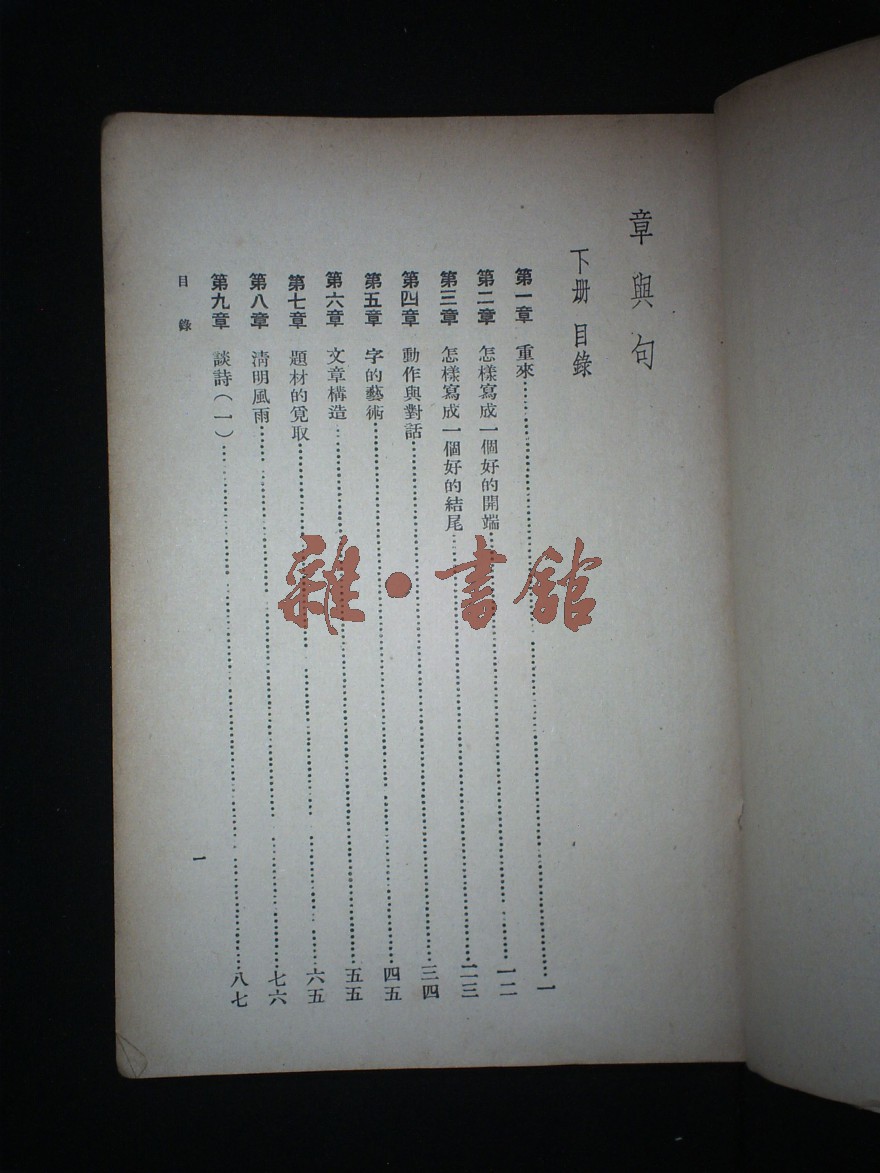 章與句
下册 目錄
第一章 重來……一
第二章 怎樣寫成一個好的開端……一二
第三章 怎樣寫成一個好的結尾……二三
第四章 動作與對話……三四
第五章 字的藝術……四五
第六章 文章構造……五五
第七章 題材的覓取……六五
第八章 淸明風雨……七六
第九章 談詩(一)……八七
目錄
一
雜·書館